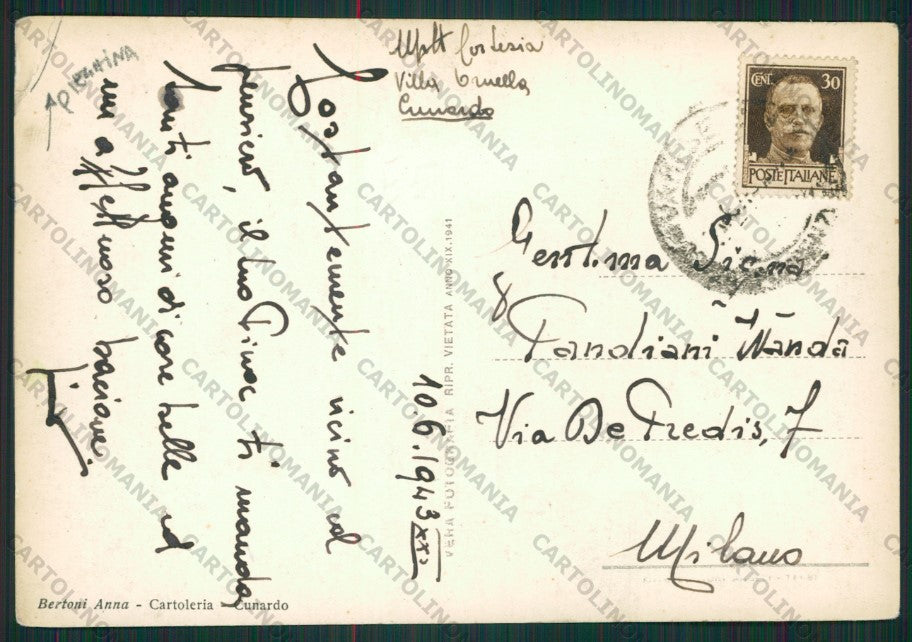 Costantemente vicino col
pensiero, il tuo Pinoc ti manda,
tanti auguri di cose belle ed
un affettuoso bacione
Pino
10.6.1943 XXI
Cortesia
Villa Ornella
Cunardo
CENT. 30
POSTE ITALIANE
Gent.ma Sig.na
Pandiani Wanda
Via De Predis, 7
Milano
VERA FOTOGRAFIA RIPR. VIETATA ANNO XIX.1941
Bertoni Anna - Cartoleria - Cunardo
CARTOLINOMANIA